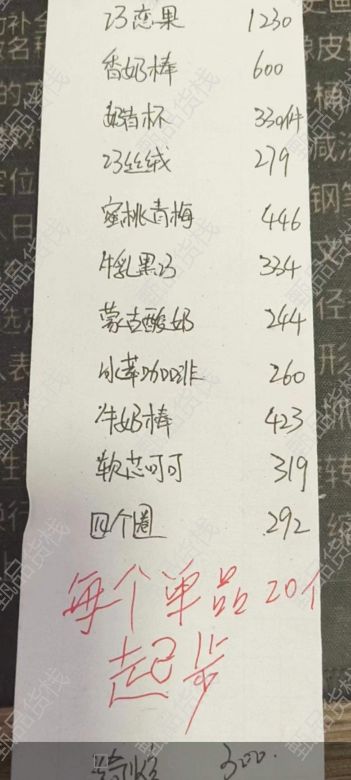 巧恋果 1230
香奶棒 600
奶昔杯 330件
巧丝绒 279
蜜桃青梅 446
牛乳黑巧 334
蒙古酸奶 244
冰萃咖啡 260
牛奶棒 423
软芯可可 319
四个圈 292
每个单品20个
起步
300.